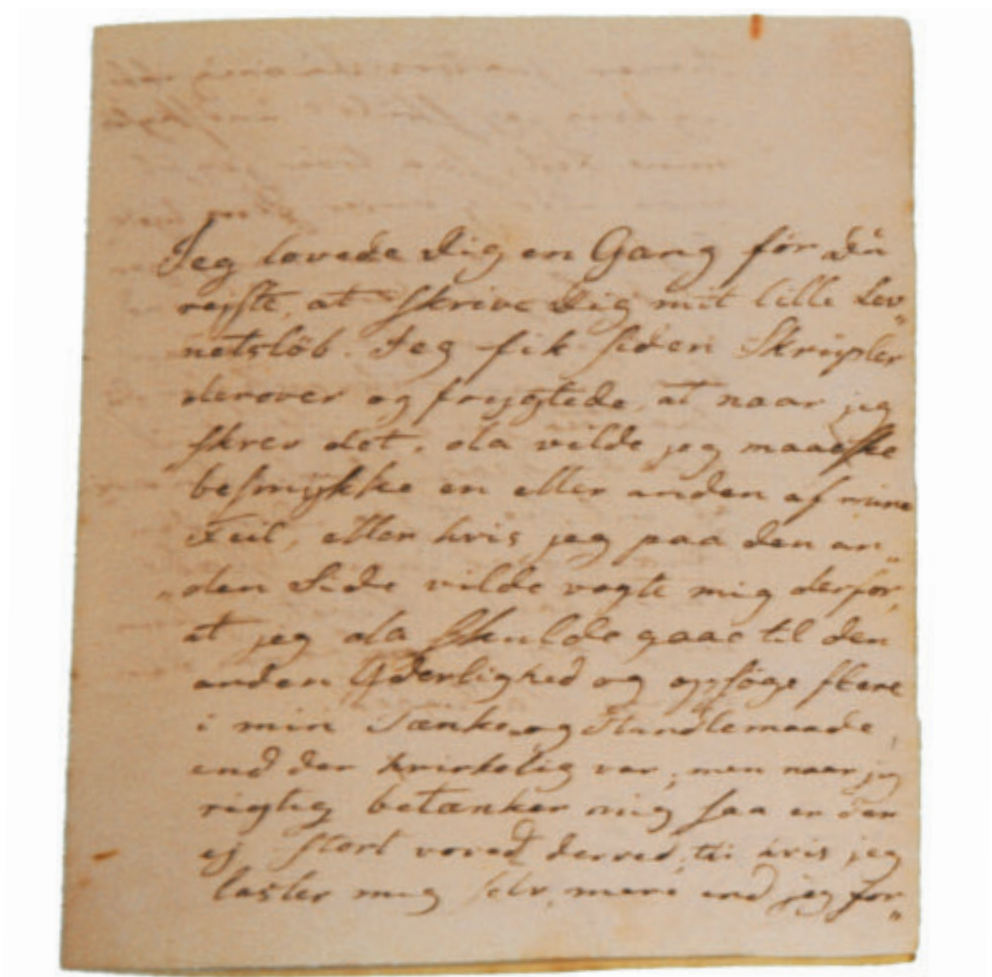 Jeg lovede dig en Gang før du
rejste, at skrive dig mit lille Lev„
netsløb. Jeg fik siden Skrupler
derover og frygtede, at naar jeg
skrev det, da vilde jeg maaske
besmykke en eller anden af mine
Feil, eller hvis jeg paa den an„
„den Side vilde vogte mig derfor,
at jeg da skulde gaae til den
anden Yderlighed og opsøge flere
i min Tænke og Handlemaade,
end der virkelig var, men naar jeg
rigtig betænker mig saa er der
ej stort voved derved, thi hvis jeg
laster mig selv, mere end jeg for„